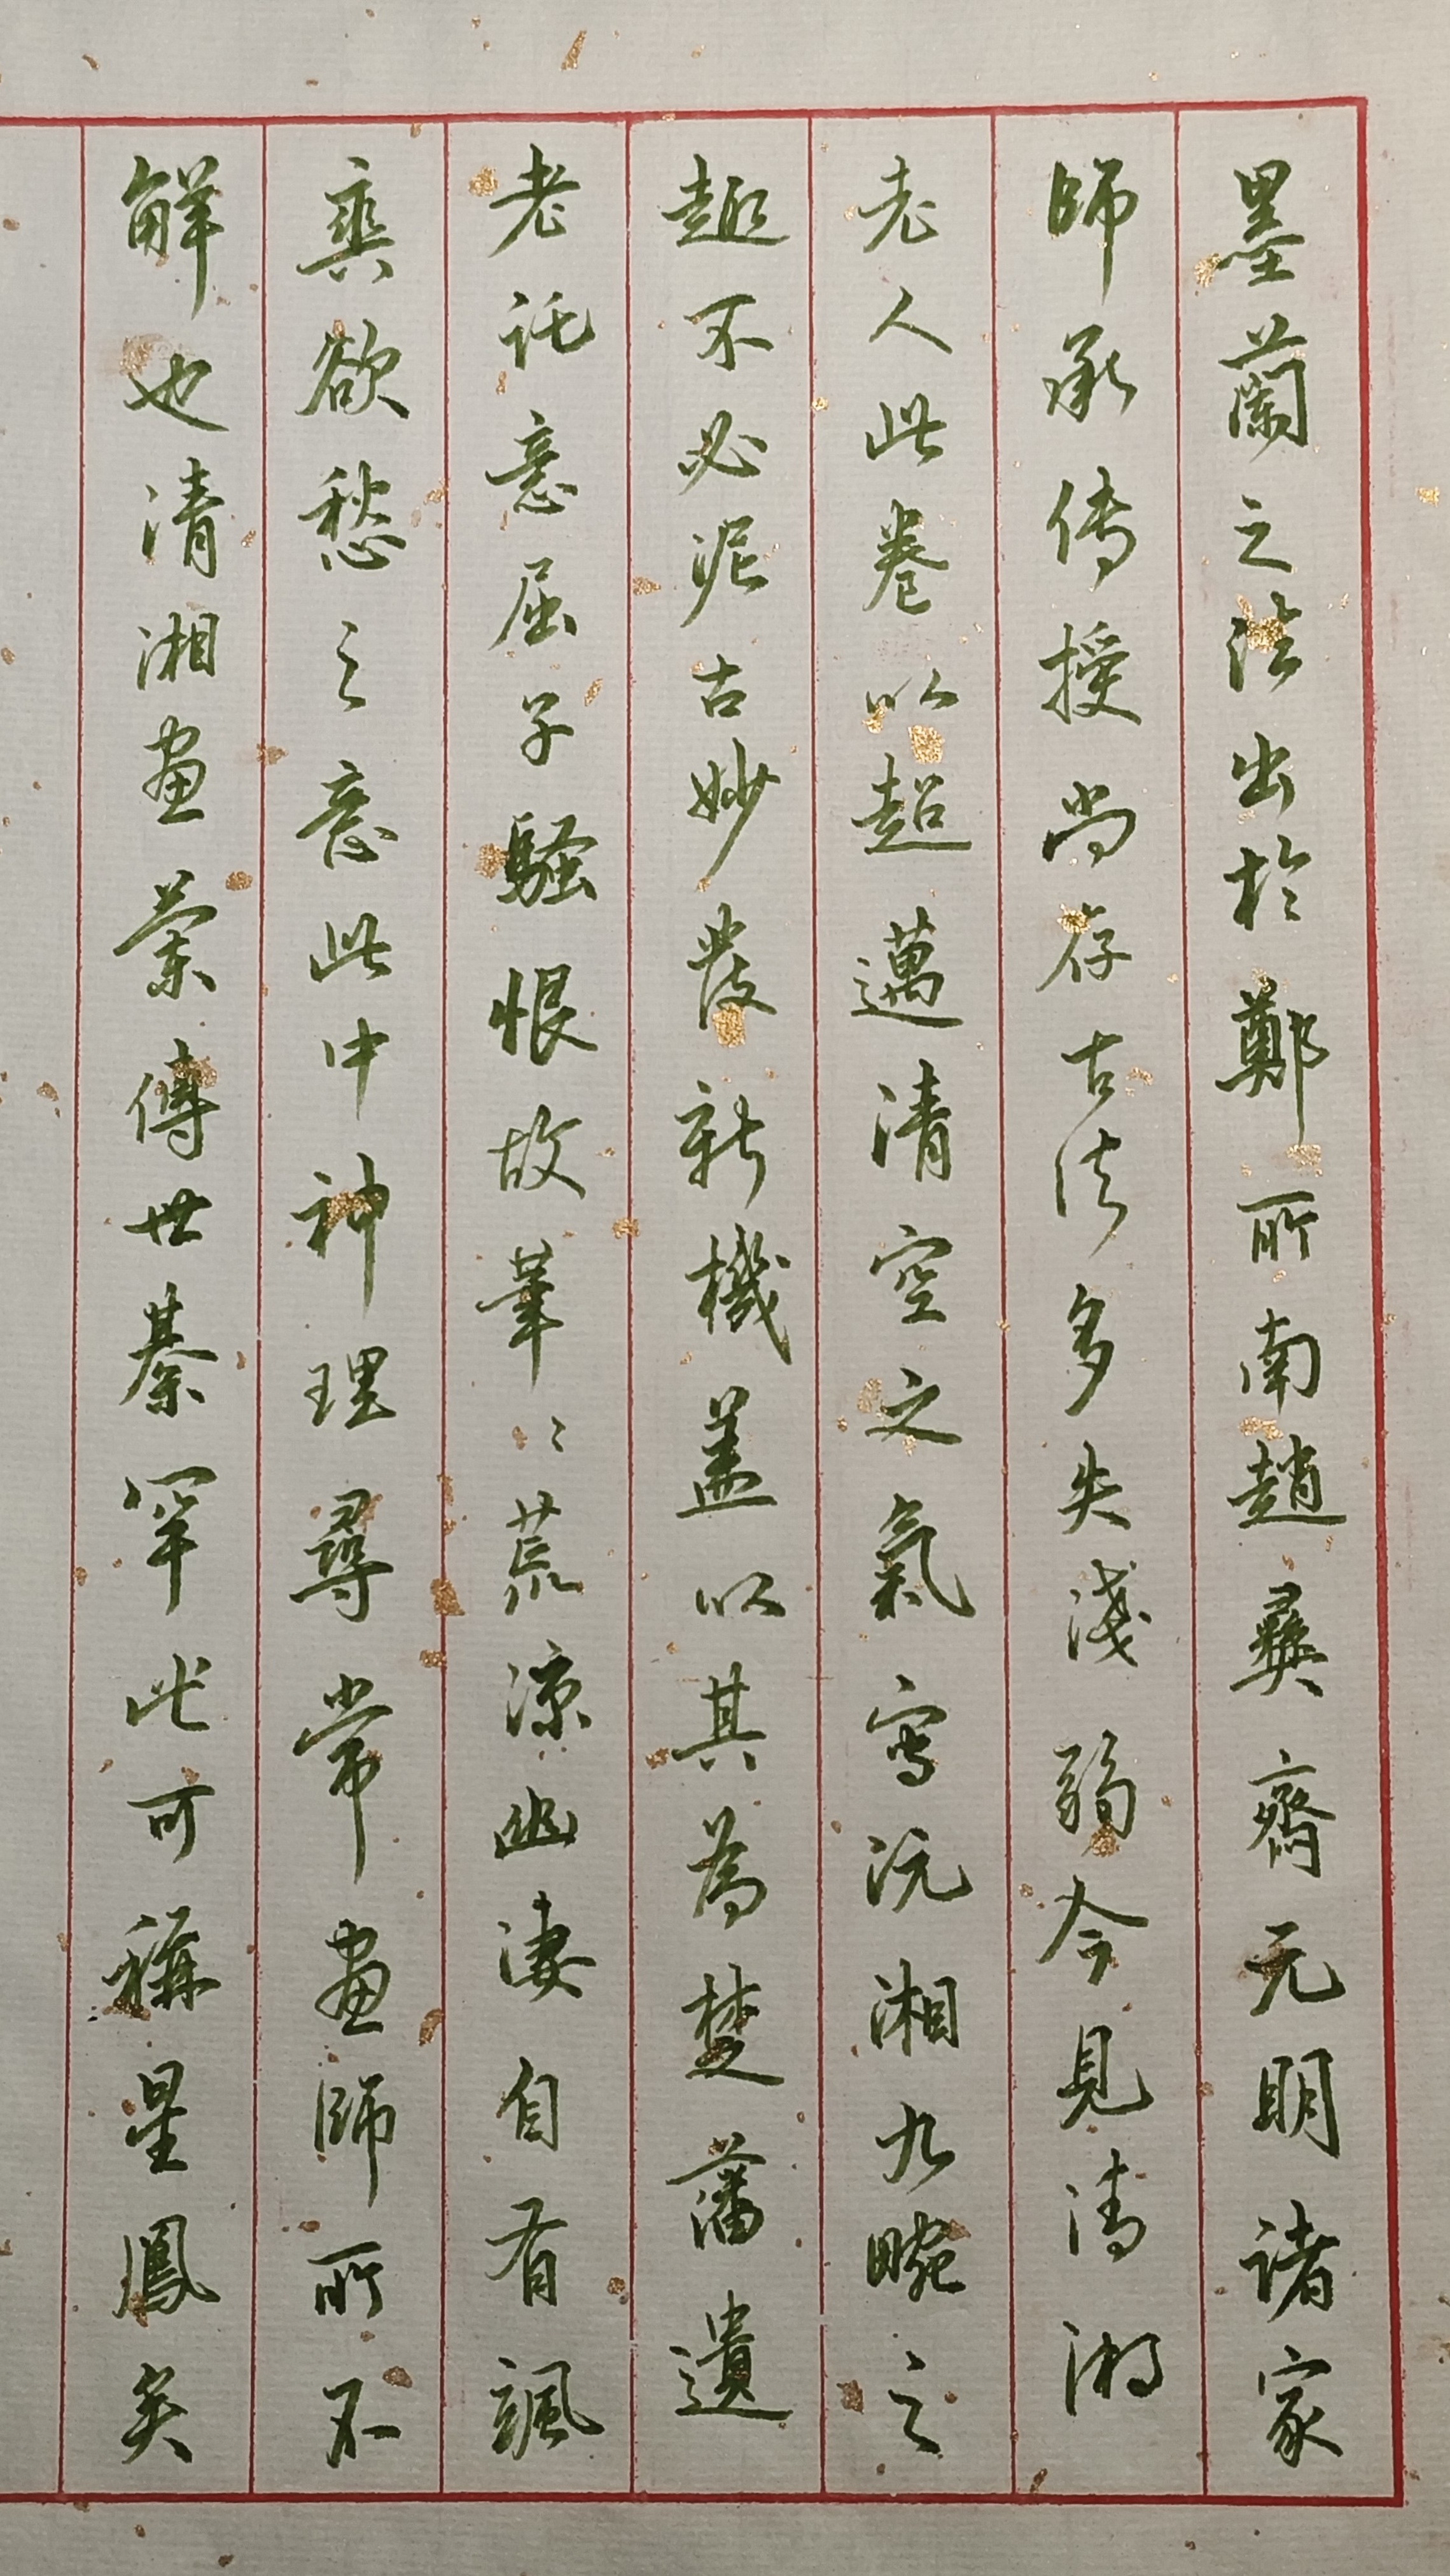 墨蘭之法出於鄭所南趙彝齊元明諸家
師承傳授尚存古法多失淺弱今見清湘
老人此卷以超邁清空之氣寫沅湘九畹之
趣不必泥古妙發新機蓋以其為楚藩遺
老託意屈子騷恨故筆〻荒涼幽淒自有颯
爽欲愁之意此中神理尋常畫師所不
解也清湘畫蘭傳世綦罕此可稱星鳳矣